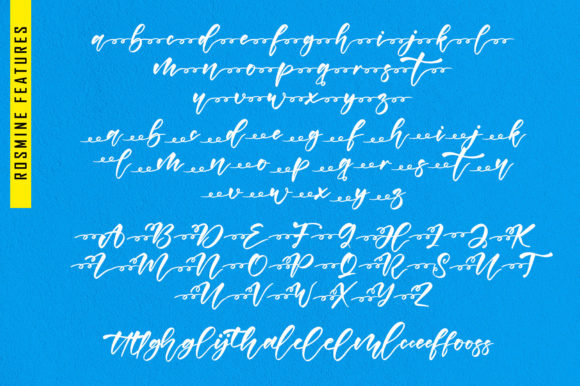 ROSMINE FEATURES
a b c d e f g h i j k l
m n o p q r s t
u v w x y z
a b c d e f g h i j k
l m n o p q r s t u
v w x y z
A B D E F G H I J K
L M N O P Q R S U T
U V W X Y Z
tttlghglijthalelelmlcceeffooss